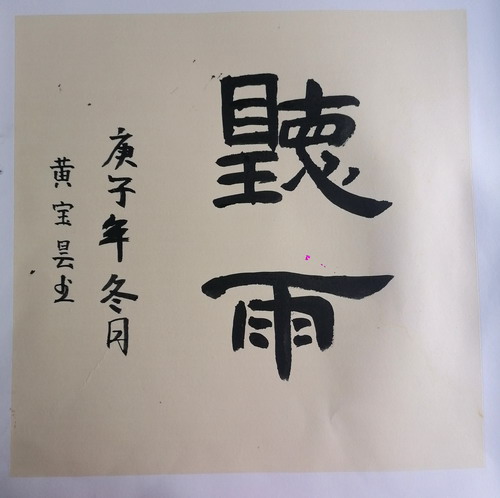 聽雨
庚子年冬月
黄宝昙书